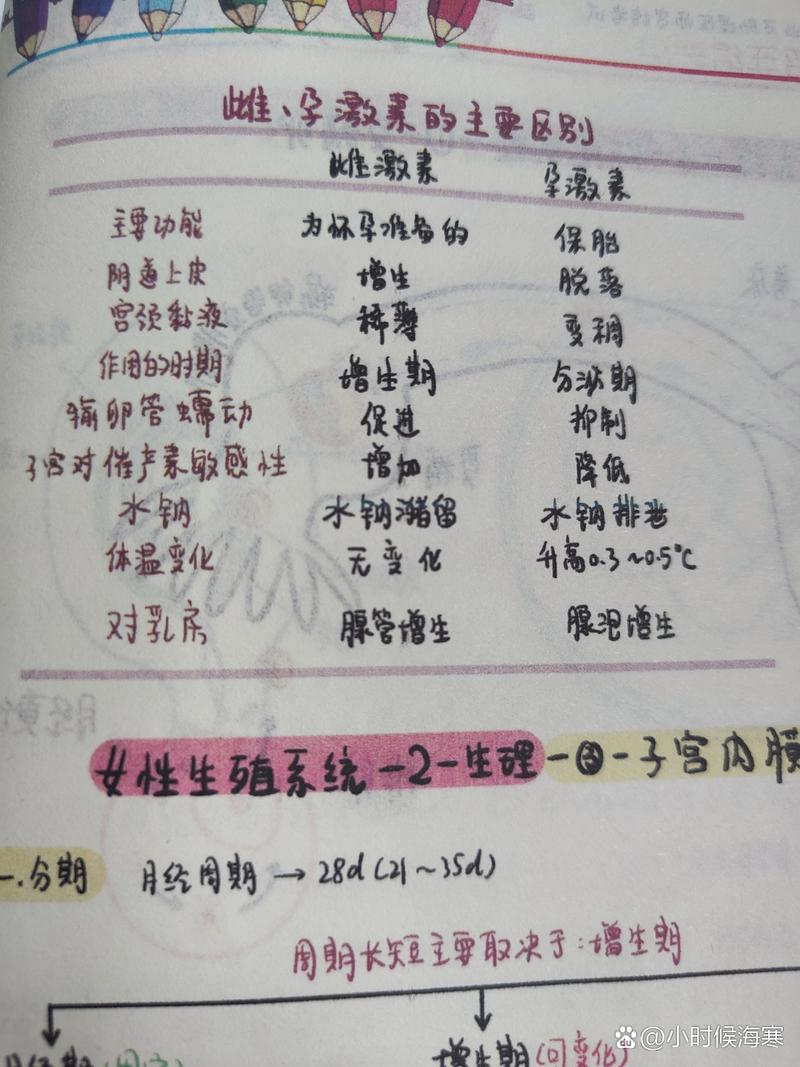 雌、孕激素的主要区别
雌激素 孕激素
主要功能 为怀孕准备的 保胎
阴道上皮 增生 脱落
宫颈黏液 稀薄 变稠
作用的时期 增生期 分泌期
输卵管蠕动 促进 抑制
子宫对催产素敏感性 增加 降低
水钠 水钠潴留 水钠排泄
体温变化 无变化 升高0.3~0.5℃
对乳房 腺管增生 腺泡增生
女性生殖系统-2-生理-③-子宫内膜
一.分期 月经周期→28d(21~35d)
周期长短主要取决于:增生期
增生期(可变化)
@小时候海寒